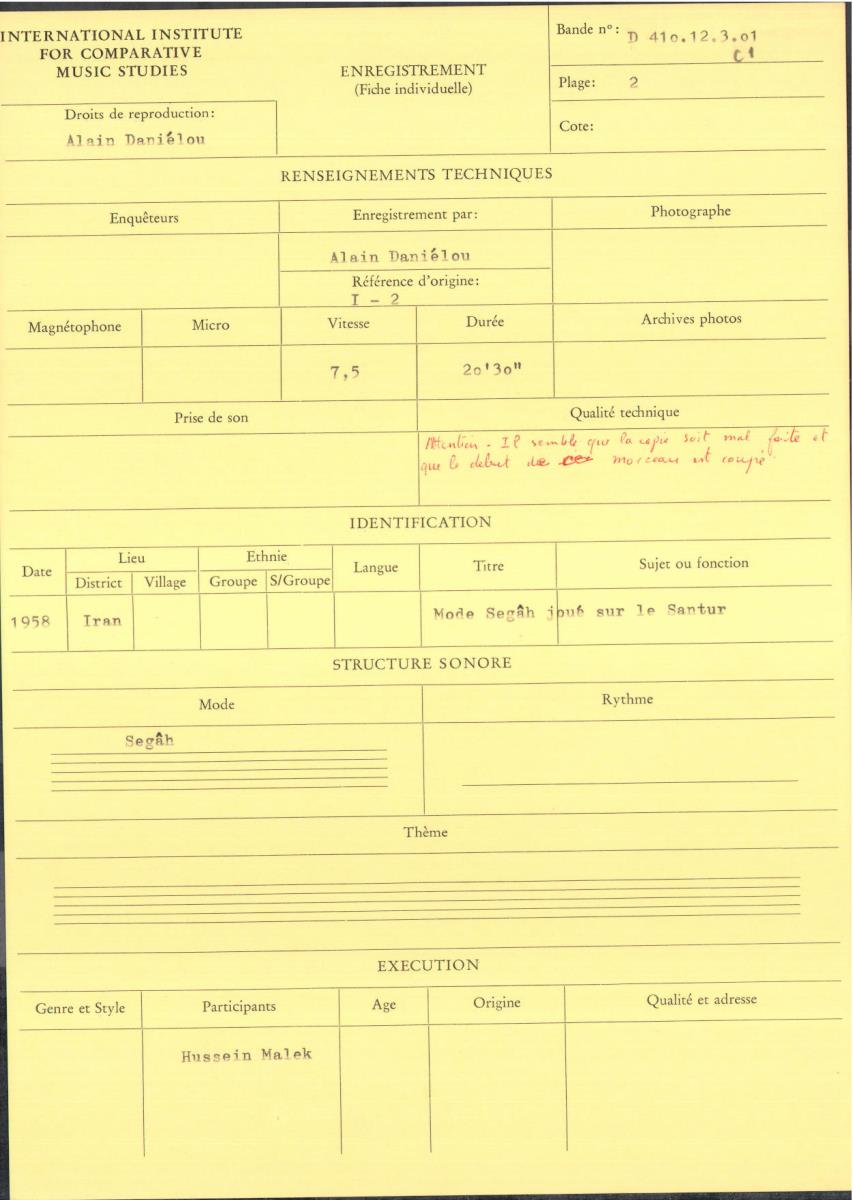 INTERNATIONAL INSTITUTE
FOR COMPARATIVE
MUSIC STUDIES
Droits de reproduction:
Alain Daniélou
ENREGISTREMENT
(Fiche individuelle)
Bande nº: D 41o.12.3.o1
C1
Plage: 2
Cote:
RENSEIGNEMENTS TECHNIQUES
Enquêteurs
Enregistrement par:
Photographe
Alain Daniélou
Référence d'origine:
I - 2
Magnétophone
Micro
Vitesse
Durée
Archives photos
7,5
2o'3o"
Prise de son
Qualité technique
Attention - Il semble que la copie soit mal faite et
que le debut de ce morceau est coupé
IDENTIFICATION
Date
Lieu
Ethnie
Langue
Titre
Sujet ou fonction
District
Village
Groupe
S/Groupe
1958
Iran
Mode Segâh joué sur le Santur
STRUCTURE SONORE
Mode
Rythme
Segâh
Thème
EXECUTION
Genre et Style
Participants
Age
Origine
Qualité et adresse
Hussein Malek